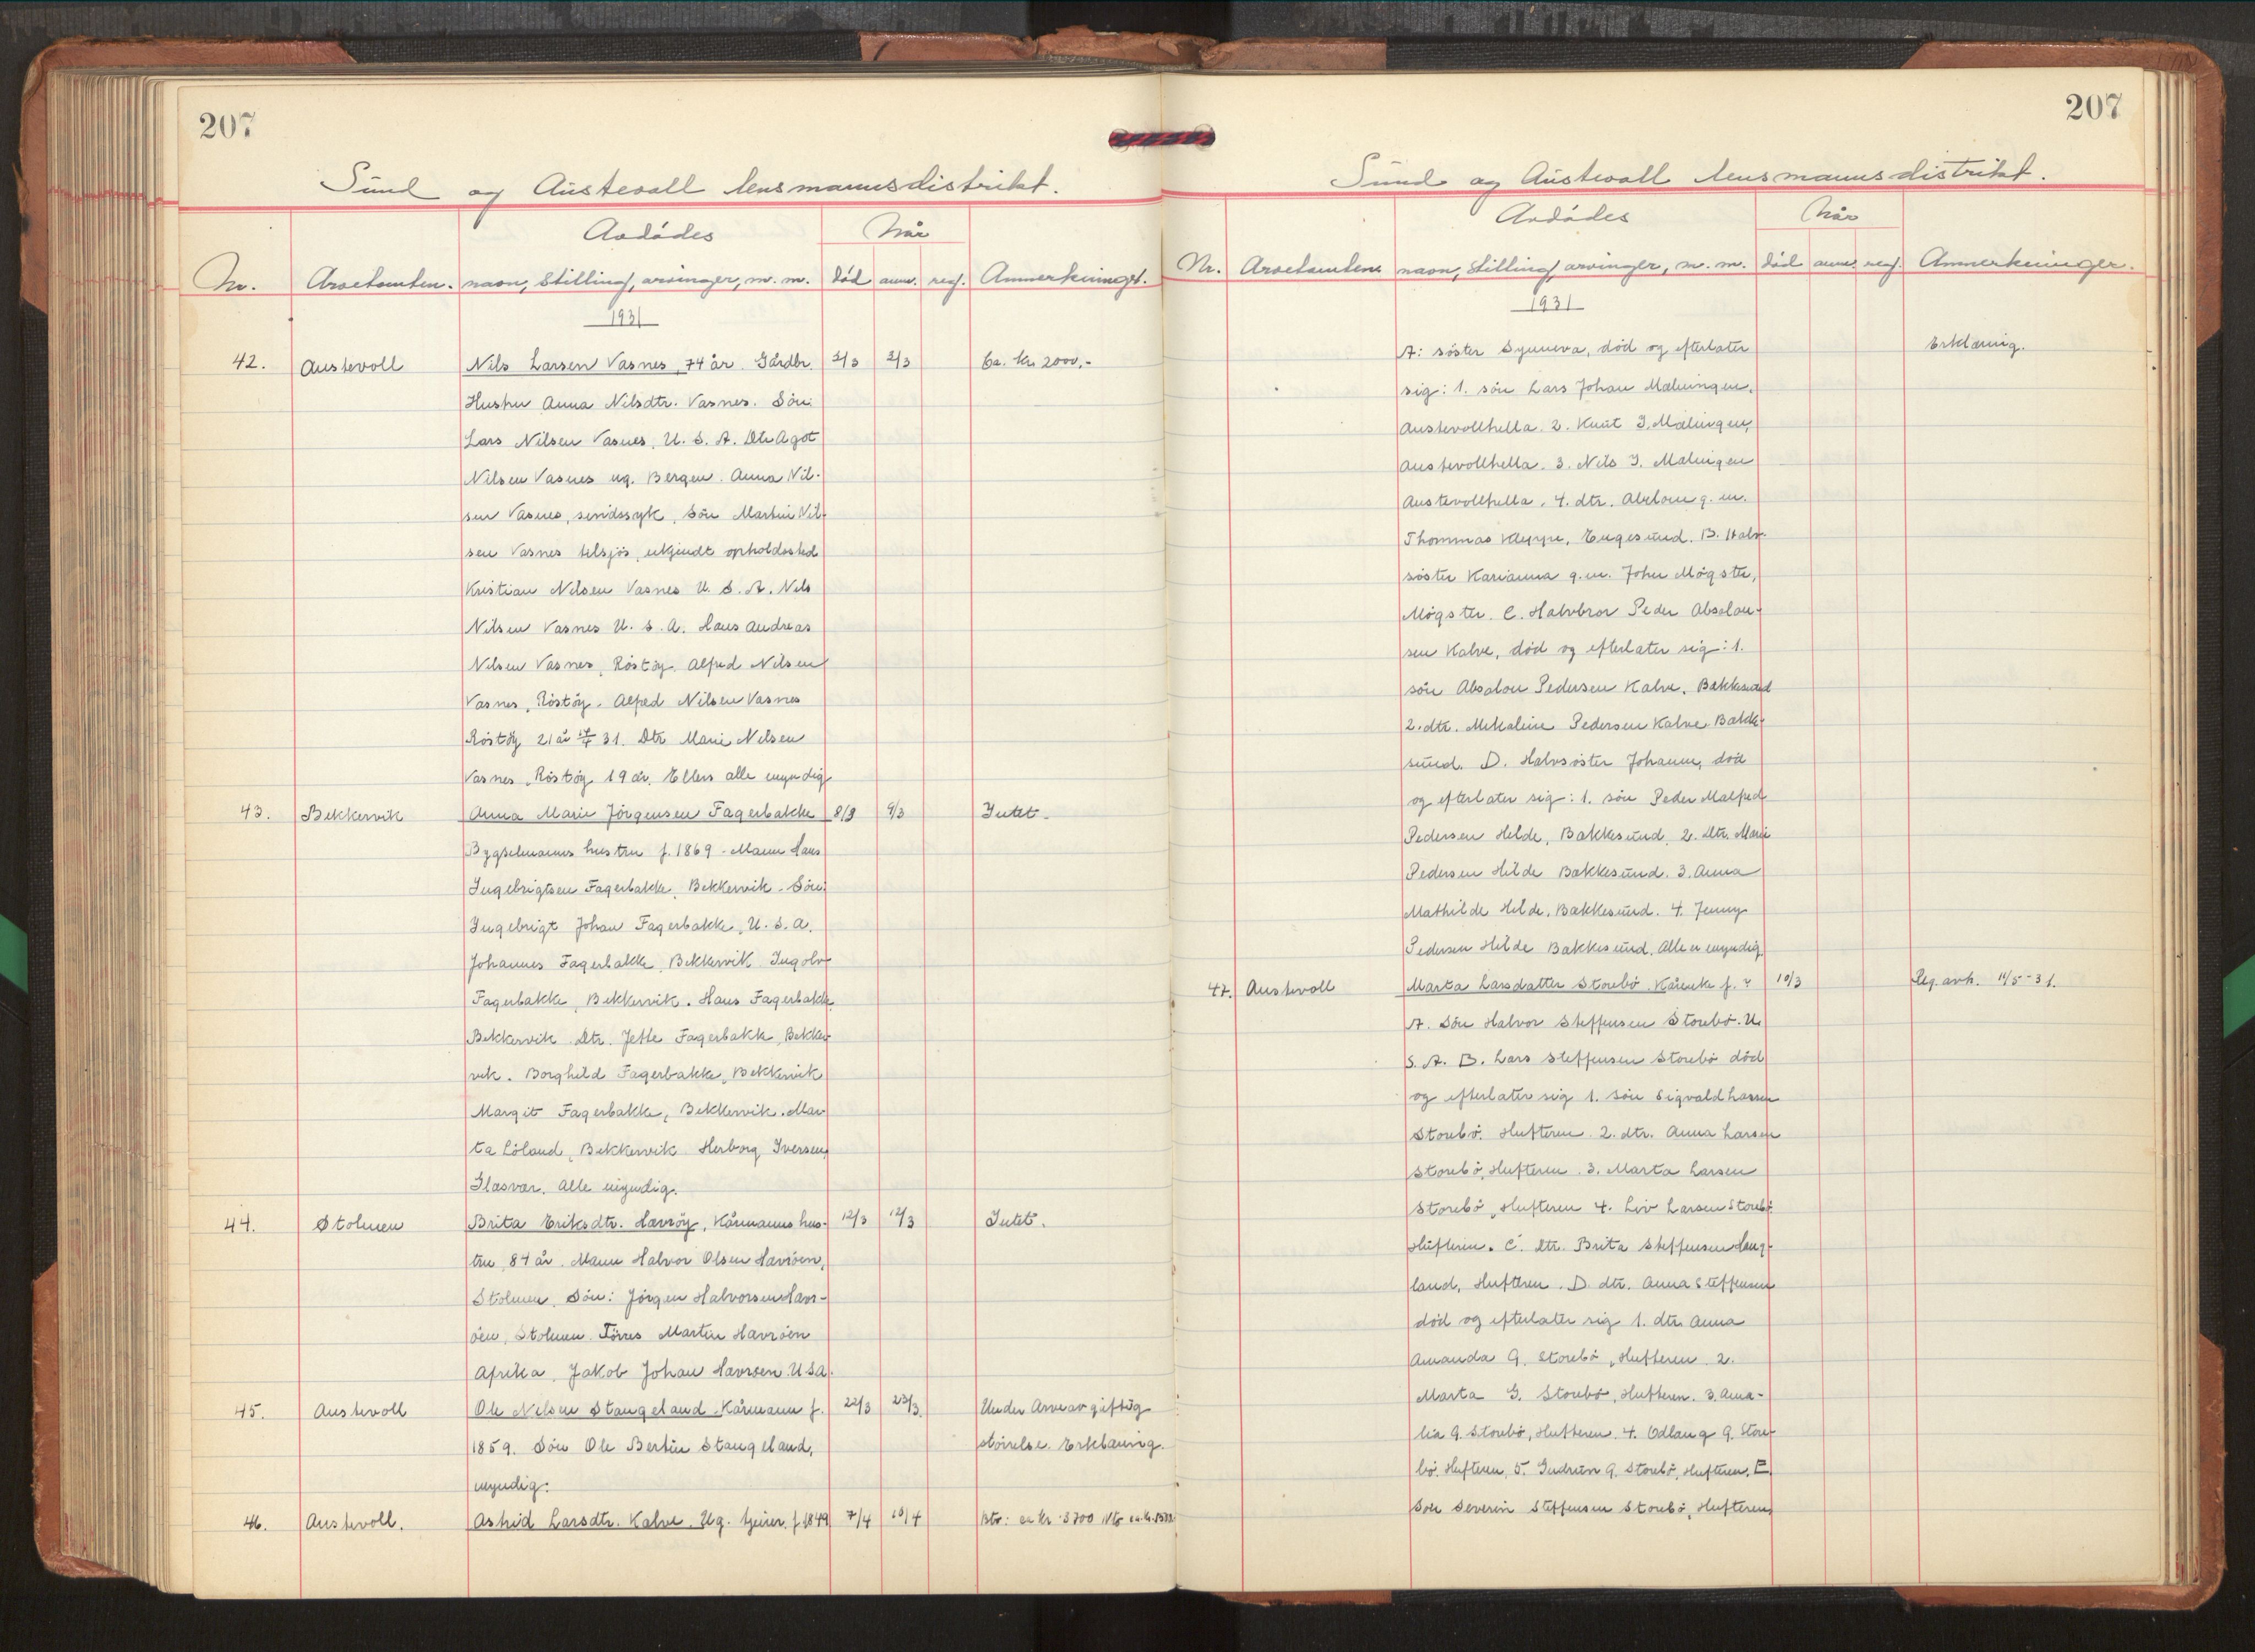 207
Sund og Austevoll lensmannsdistrikt.
Avdödes
Når
Nr. Avsetomten. navn, Stilling, arvinger, m. m. död anm. reg. Anmerkninger.
1931
42. Austevoll Nils Larsen Vasnes, 74 år. Gårdbr. 2/3 2/3 Ca. kr. 2000,-
Hustru Anna Nilsdtr. Vasnes. Sön:
Lars Nilsen Vasnes, U. S. A. Dtr Agot
Nilsen Vasnes ug. Bergen. Anna Nil-
sen Vasnes, sindssyk, Sön Martin Nil-
sen Vasnes tilsjös, ukjendt opholdssted
Kristian Nilsen Vasnes U. S. A. Nils
Nilsen Vasnes U. S. A. Hans Andreas
Nilsen Vasnes, Röstöy. Alfred Nilsen
Vasnes, Röstöy. Alfred Nilsen Vasnes
Röstöy 21 år 31. Dtr Marie Nilsen
Vasnes, Röstöy 19 år. Ellers alle myndig
43. Bekkervik Anna Marie Jörgensen Fagerbakke 8/3 9/3 Intet.
Bygselmanns hustru f. 1869. Mann Hans
Ingebrigtsen Fagerbakke, Bekkervik. Sön:
Ingebrigt Johan Fagerbakke, U. S. A.
Johannes Fagerbakke, Bekkervik Ingolv
Fagerbakke, Bekkervik. Hans Fagerbakke,
Bekkervik Dtr. Jette Fagerbakk, Bekker-
vik. Borghild Fagerbakke, Bekkervik
Margit Fagerbakke, Bekkervik. Mar-
ta Löland, Bekkervik Herborg Iversen,
Glasvær. Alle myndig.
44. Stolmen Brita Eriksdtr. Havröy, Kårmanns hus- 12/3 12/3 Intet.
tru 84 år. Mann Halvor Olsen Havröen,
Stolmen. Sön: Jörgen Halvorsen Havr-
öen, Stolmen. Törres Martin Havröen
Afrika, Jakob Johan Havröen. U S A.
45. Austevoll Ole Nilsen Stangeland. Kårmann f. 22/3 23/3. Under Arveavgiftig
1859. Sön Ole Bertin Stangeland, störrelse. Erklæring.
myndig.
46. Austevoll. Astrid Larsdtr. Kalve. Ug. tjener. f 1849 7/4 10/4 Bto: ca kr 3700 Nto ca. kr.
207
Sund og Austevoll lensmannsdistrikt.
Avdödes
Når
Nr. Avsetomten navn, stilling, arvinger, m. m. död anm. reg. Anmerkninger.
1931
A: söster Synneva, död og efterlater Erklæring.
sig: 1. sön Lars Johan Malmingen,
Austevollhella. 2. Knut J. Malingen,
Austevollhella. 3. Nils J. Malingen
Austevollhella, 4. dtr. Abelone g. m.
Thommas Kleppe, Engesund. B. Halv-
söster Karianna g. m. John Mögster,
Mögster. C. Halvbror Peder Absalon-
sen Kalve, död og efterlater sig: 1.
sön Absalon Pedersen Kalve, Bakkesund
2. dtr. Mekaline Pedersen Kalve Bakke-
sund. D. Halvsöster Johanne, död
og efterlater sig: 1. sön Peder Malfred
Pedersen Helde, Bakkesund, 2. dtr. Marie
Pedersen Hilde Bakkesund. 3. Anna
Mathilde Helde, Bakkesund. 4. Jenny
Pedersen Hilde Bakkesund, Alle er myndig.
47. Austevoll Marta Larsdatter Storebö. Kårenke f. ? 10/3 Reg. avh. 11/5-31.
A. Sön Halvor Steffensen Storebö. U.
S. A. B. Lars Steffensen Storebö död
og efterlater sig 1. sön Sigvald Larsen
Storebö. Hufteren. 2. dtr. Anna Larsen
Storebö, Hufteren. 3. Marta Larsen
Storebö, Hufteren 4. Liv Larsen Storebö
Hufteren. C. dtr. Brita Steffensen Haug-
land, Hufteren. D dtr. Anna Steffensen
död og efterlater sig 1. dtr. Anna
Amanda G. Storebö, Hufteren 2.
Marta G. Storebö, Hufteren. 3. Ama-
lia G. Storebö, Hufteren. 4. Odlaug G. Store-
bö. Hufteren, 5. Gudrun G. Storebö, Hufteren. E.
Son Severin Steffensen Storebö, Hufteren,